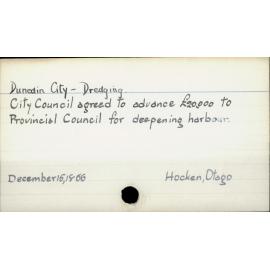 Dunedin City - Dredging
City Council agreed to advance £20,000 to
Provincial Council for deepening harbour.
December 15, 1866 Hocken, Otago